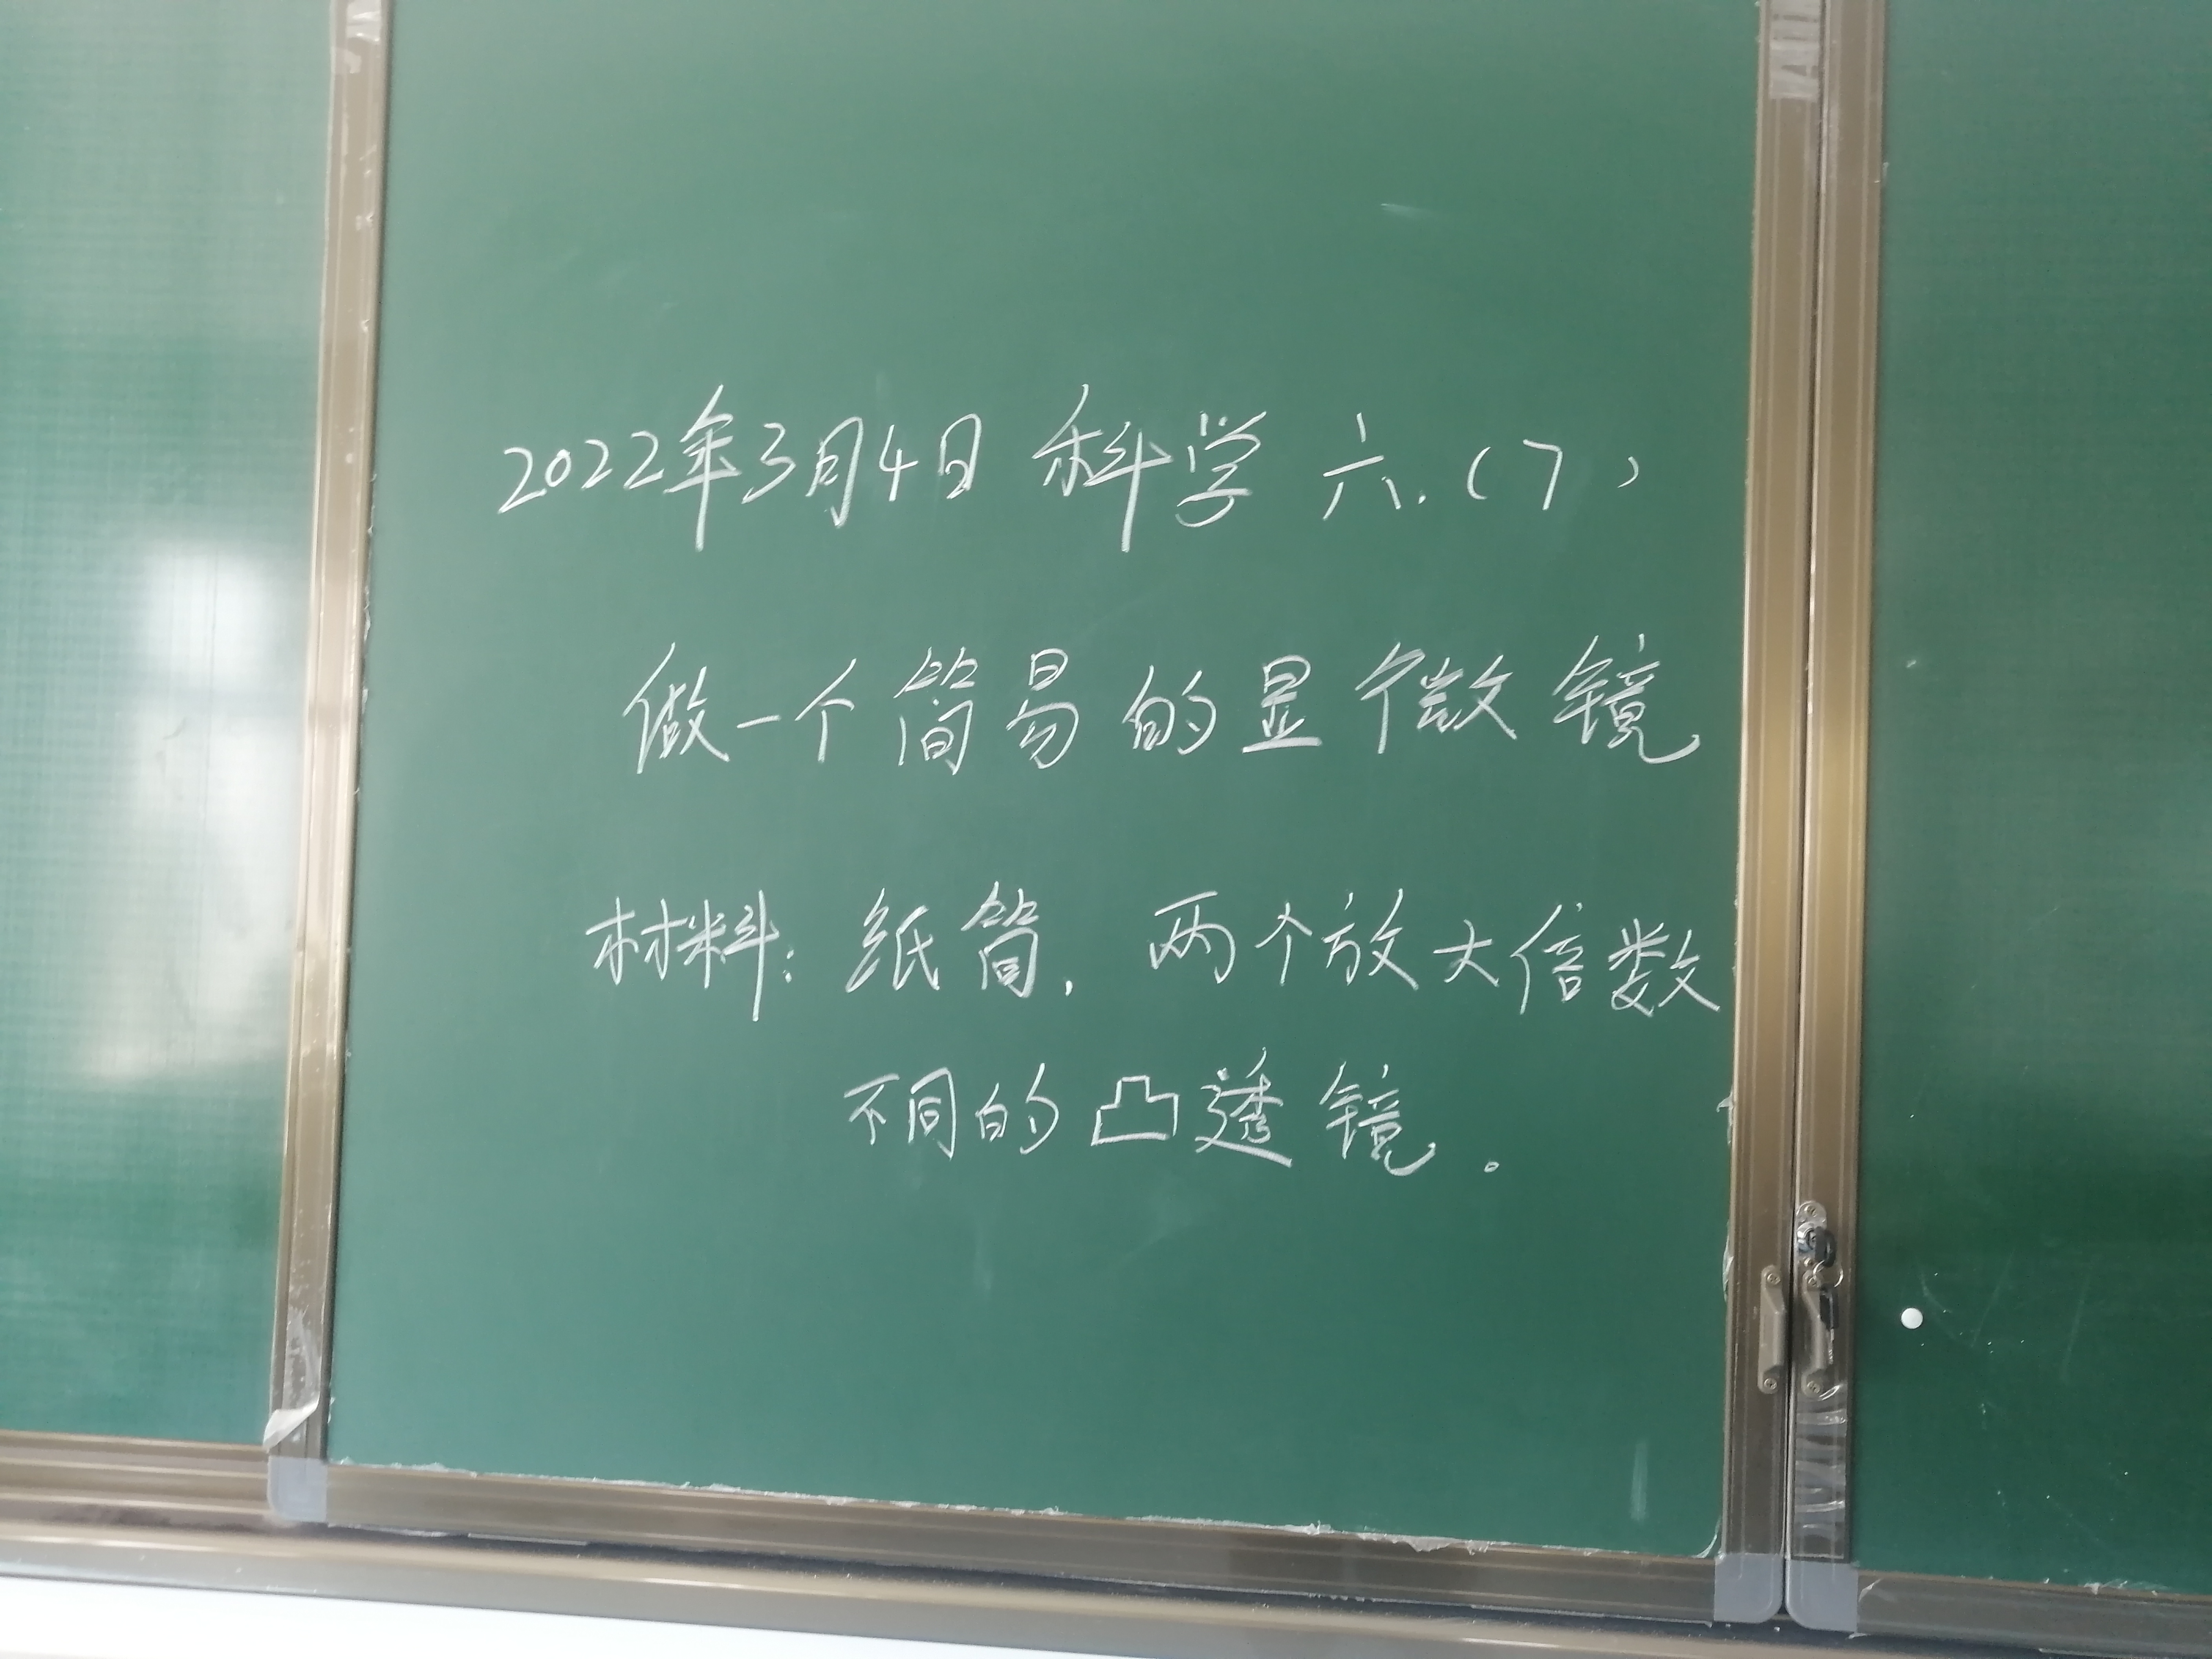 2022年3月4日 科学 六.(7)
做一个简易的显微镜
材料:纸筒,两个放大倍数
不同的凸透镜。